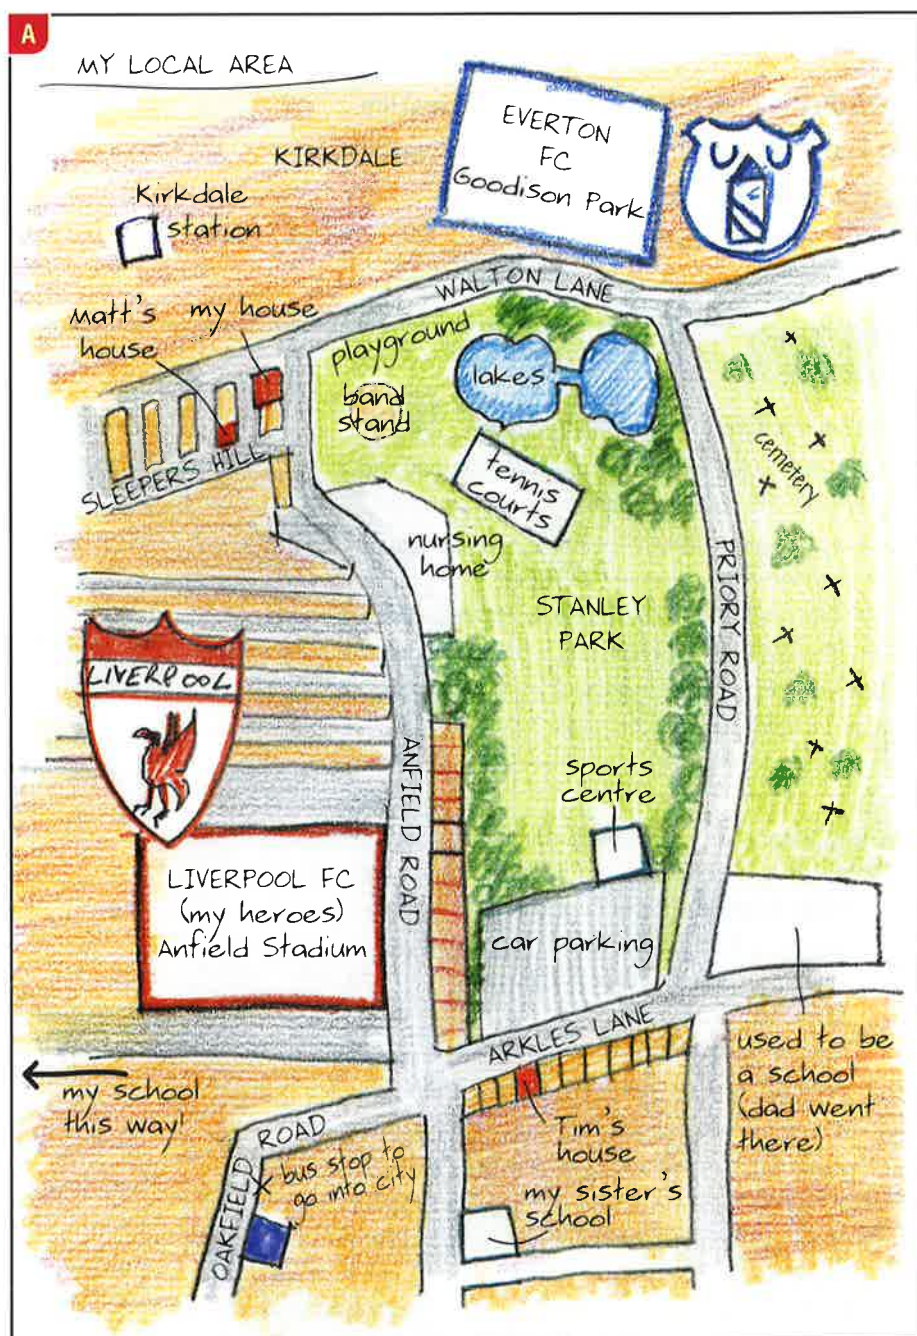 A
MY LOCAL AREA
EVERTON
FC
Goodison Park
KIRKDALE
Kirkdale
station
WALTON LANE
Matt's
house
my house
playground
lakes
band
stand
tennis
courts
cemetery
SLEEPERS HILL
nursing
home
PRIORY ROAD
STANLEY
PARK
LIVERPOOL
ANFIELD ROAD
sports
centre
LIVERPOOL FC
(my heroes)
Anfield Stadium
car parking
ARKLES LANE
used to be
a school
(dad went
there)
my school
this way!
Tim's
house
OAKFIELD ROAD
bus stop to
go into city
my sister's
school